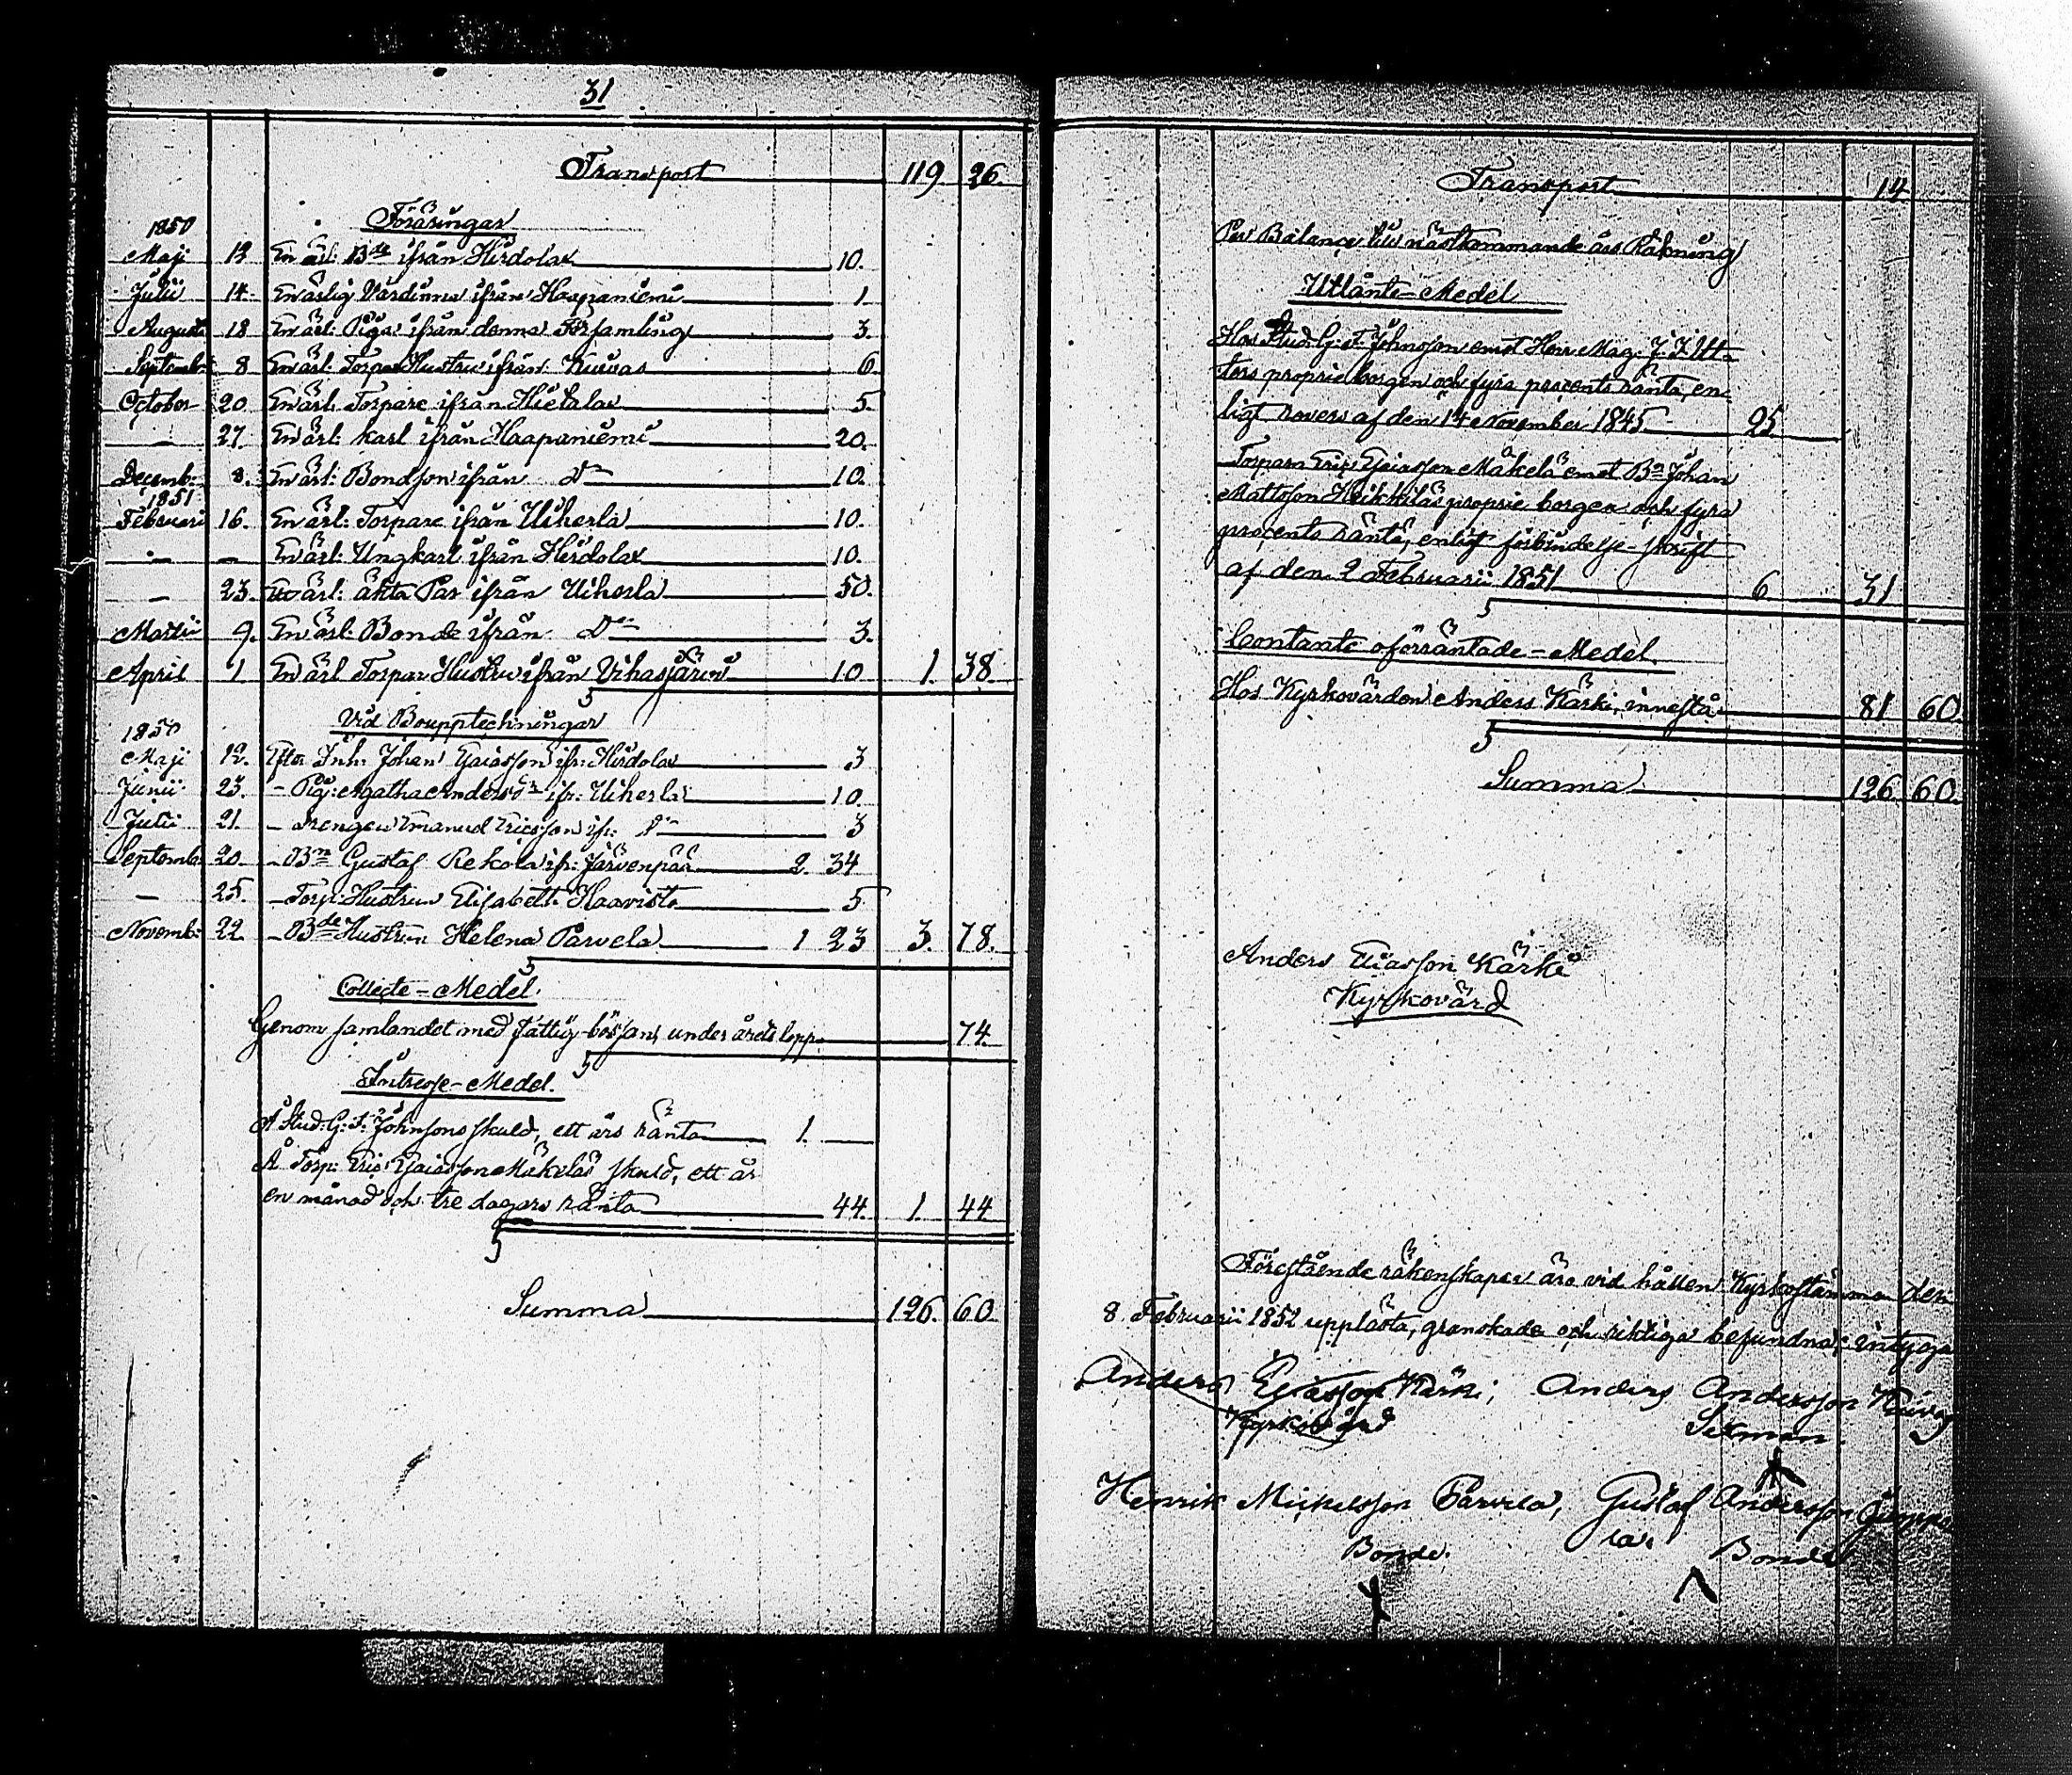 31
Transport 119 26.
Föräringar
1850
Maji 12 En ärl: Bde ifrån Hirdola 10.
Julii 14. En ärlig Värdinna ifrån Haapaniemi 1.
Augusti 18 En ärl: Piga ifrån denna Församling 3.
Septemb: 8 En ärl: Torpar Hustru ifrån Kuivas 6
October 20 En ärl: Torpare ifrån Hietala 5.
— 27. En ärl: karl ifrån Haapaniemi 20.
Decemb: 8. En ärl: Bondson ifrån Do 10.
1851
Februari 16. En ärl: Torpare ifrån Uiherla 10.
— — En ärl: Ungkarl ifrån Hirdola 10.
— 23. Ett ärl: äkta Par ifrån Uiherla 50.
Martii 9. En ärl: Bonde ifrån Do 3.
April 1 En ärl Torpar Hustru ifrån Vihasjärvi 10 1. 38.
Vid Boupptechningar
1850
Maji 12. Efter Inh: Johan Esaiasson ifr: Hirdola 3
Junii 23. – Pig: Agatha Andersdr ifr: Uiherla 10.
Julii 21. – Drengen Emanuel Ericsson ifr: Do 3
Septemb: 20. – Bn Gustaf Rekola ifr: Järvenpää 2. 34
— 25. – Torp: Hustrun Elisabeth Haavisto 5
Novemb: 22. – Bde Hustrun Helena Parvela 1 23 3. 78.
Collecte-Medel.
Genom samlandet med fattig-bössan, under årets lopp 74.
Intresse-Medel.
Å Stud: G: F: Johnsons skuld, ett års ränta 1. —
Å Torp: Eric Esaiasson Mäkeläs skuld, ett år
en månad och tre dagars ränta 44. 1. 44
Summa 126. 60.
Transport 14
Per Balance till nästkommande års Räkning
Utlånte-Medel
Hos Stud: G: F: Johnsson emot Herr Mag: J: I: Utt-
ters proprie borgen och fyra procents ränta, en-
ligt revers af den 14 November 1845 25.
Torparn Eric Esaiasson Mäkelä emot Bn Johan
Mattsson Heikkiläs proprie borgen och fyra
procents ränta, enligt förbindelse-skrift
af den 2 Februarii 1851 6 31
Contante oförräntade-Medel.
Hos Kyrkovärden Anders Kärki, innestå 81 60.
Summa 126. 60.
Anders Eliasson Kärki
Kyrkovärd
Förestående räkenskaper äro vid hållen Kyrkostämma den
8 Februarii 1852 upplästa, granskade och riktiga befundna; intyga
Anders Eliasson Kärki, Anders Andersson Kuivas
Kyrkovärd Sexman.
Henrik Mickelsson Parvela, Gustaf Andersson Jumppa
la,
Bonde. Bonde